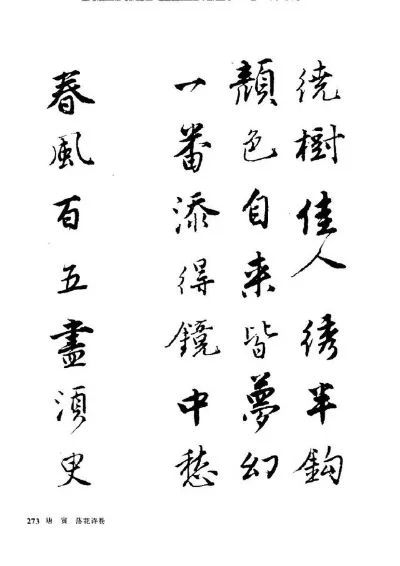 繞樹佳人綉半鈎
顏色自来皆夢幻
一番添得鏡中愁
春風百五盡須臾
273 唐 寅 落花诗卷